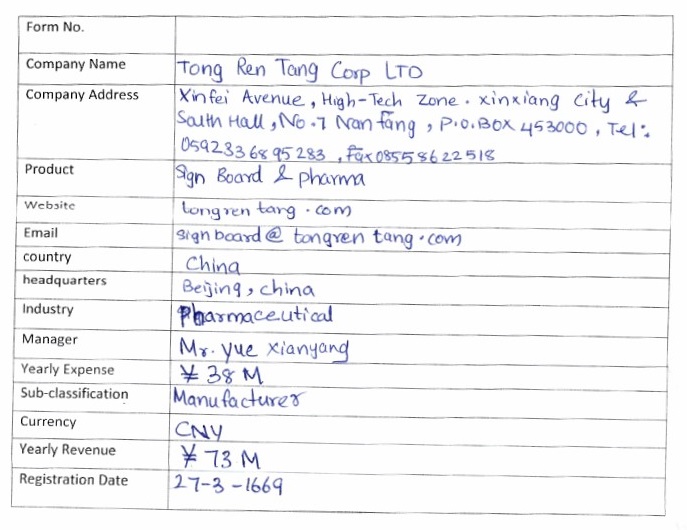 Form No.
Company Name Tong Ren Tang Corp LTD
Company Address Xinfei Avenue, High-Tech Zone. xinxiang City &
South Hall, No.7 Nan fang, P.O.BOX 453000, Tel:
0592336895283, Fax 08558622518
Product Sign Board & pharma
Website tongren tang.com
Email signboard@tongren tang.com
country China
headquarters Beijing, china
Industry Pharmaceutical
Manager Mr. Yue Xianyang
Yearly Expense ¥ 38 M
Sub-classification Manufacturer
Currency CNY
Yearly Revenue ¥ 73 M
Registration Date 27-3-1669